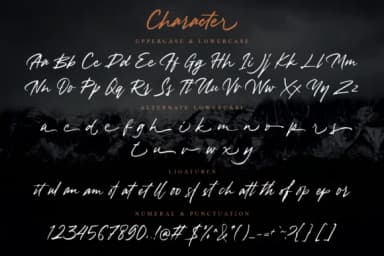 Character
UPPERCASE & LOWERCASE
Aa Bb Cc Dd Ee Ff Gg Hh Ii Jj Kk Ll Mm
Nn Oo Pp Qq Rr Ss Tt Uu Vv Ww Xx Yy Zz
ALTERNATE LOWERCASE
a c d e f g h i k m n o p r s
t u v w x y
LIGATURES
it ul an am at et ll oo sl st ch att th of op ep or
NUMERAL & PUNCTUATION
1234567890..!@#$%^&*()_-=+